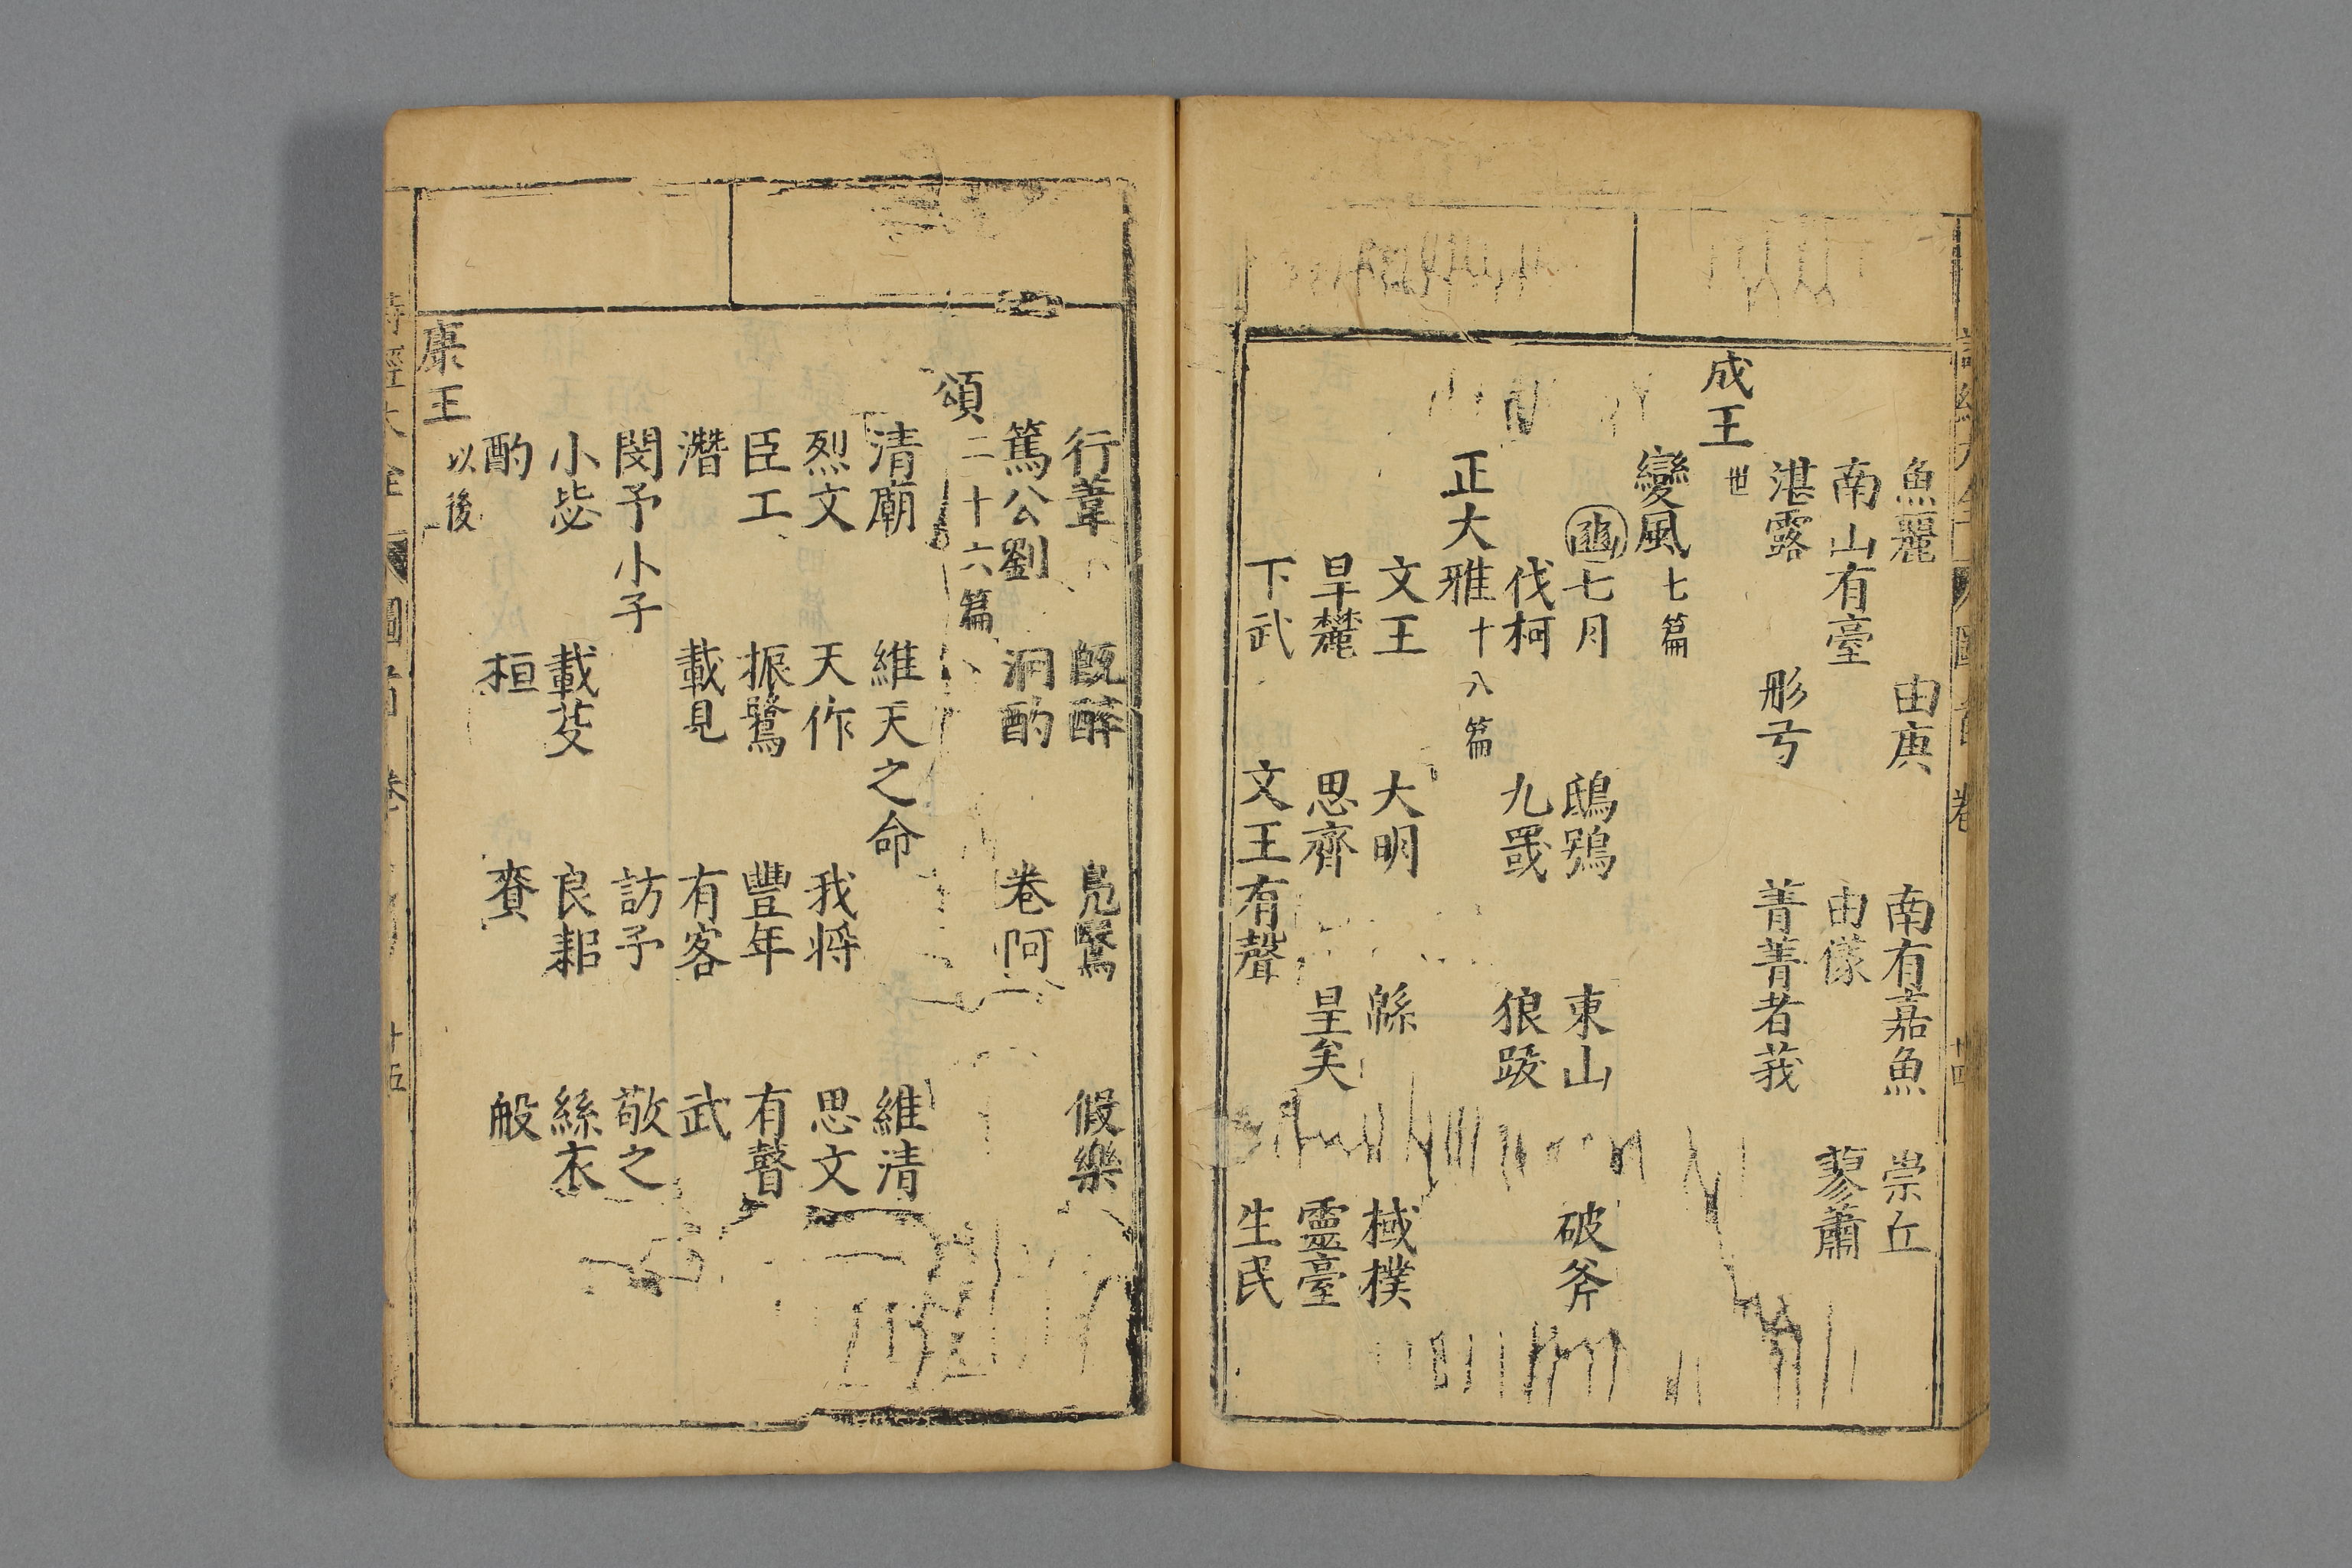 魚麗 由庚 南有嘉魚 崇丘
南山有臺 由儀 蓼蕭
湛露 彤弓 菁菁者莪
成王世
變風七篇
豳七月 鴟鴞 東山 破斧
伐柯 九罭 狼跋
正大雅十八篇
文王 大明 緜 棫樸
旱麓 思齊 皇矣 靈臺
下武 文王有聲 生民
行葦 旣醉 鳧鷖 假樂
篤公劉 泂酌 卷阿
頌二十六篇
清廟 維天之命 維清
烈文 天作 我將 思文
臣工 振鷺 豐年 有瞽
潛 載見 有客 武
閔予小子 訪予 敬之
小毖 載芟 良耜 絲衣
酌 桓 賚 般
康王以後